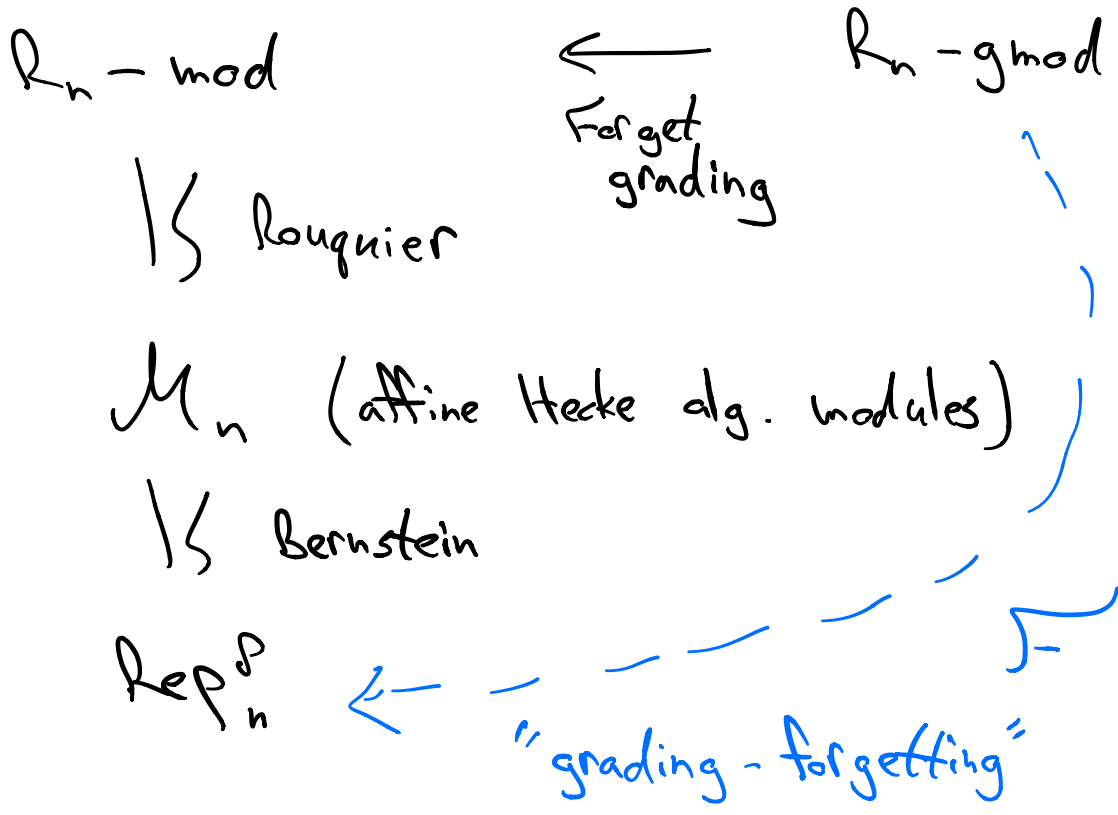 R_n - mod ← R_n - gmod
Forget
grading
≀| Rouquier
M_n (affine Hecke alg. modules)
≀| Bernstein
Rep^ρ_n
"grading-forgetting"